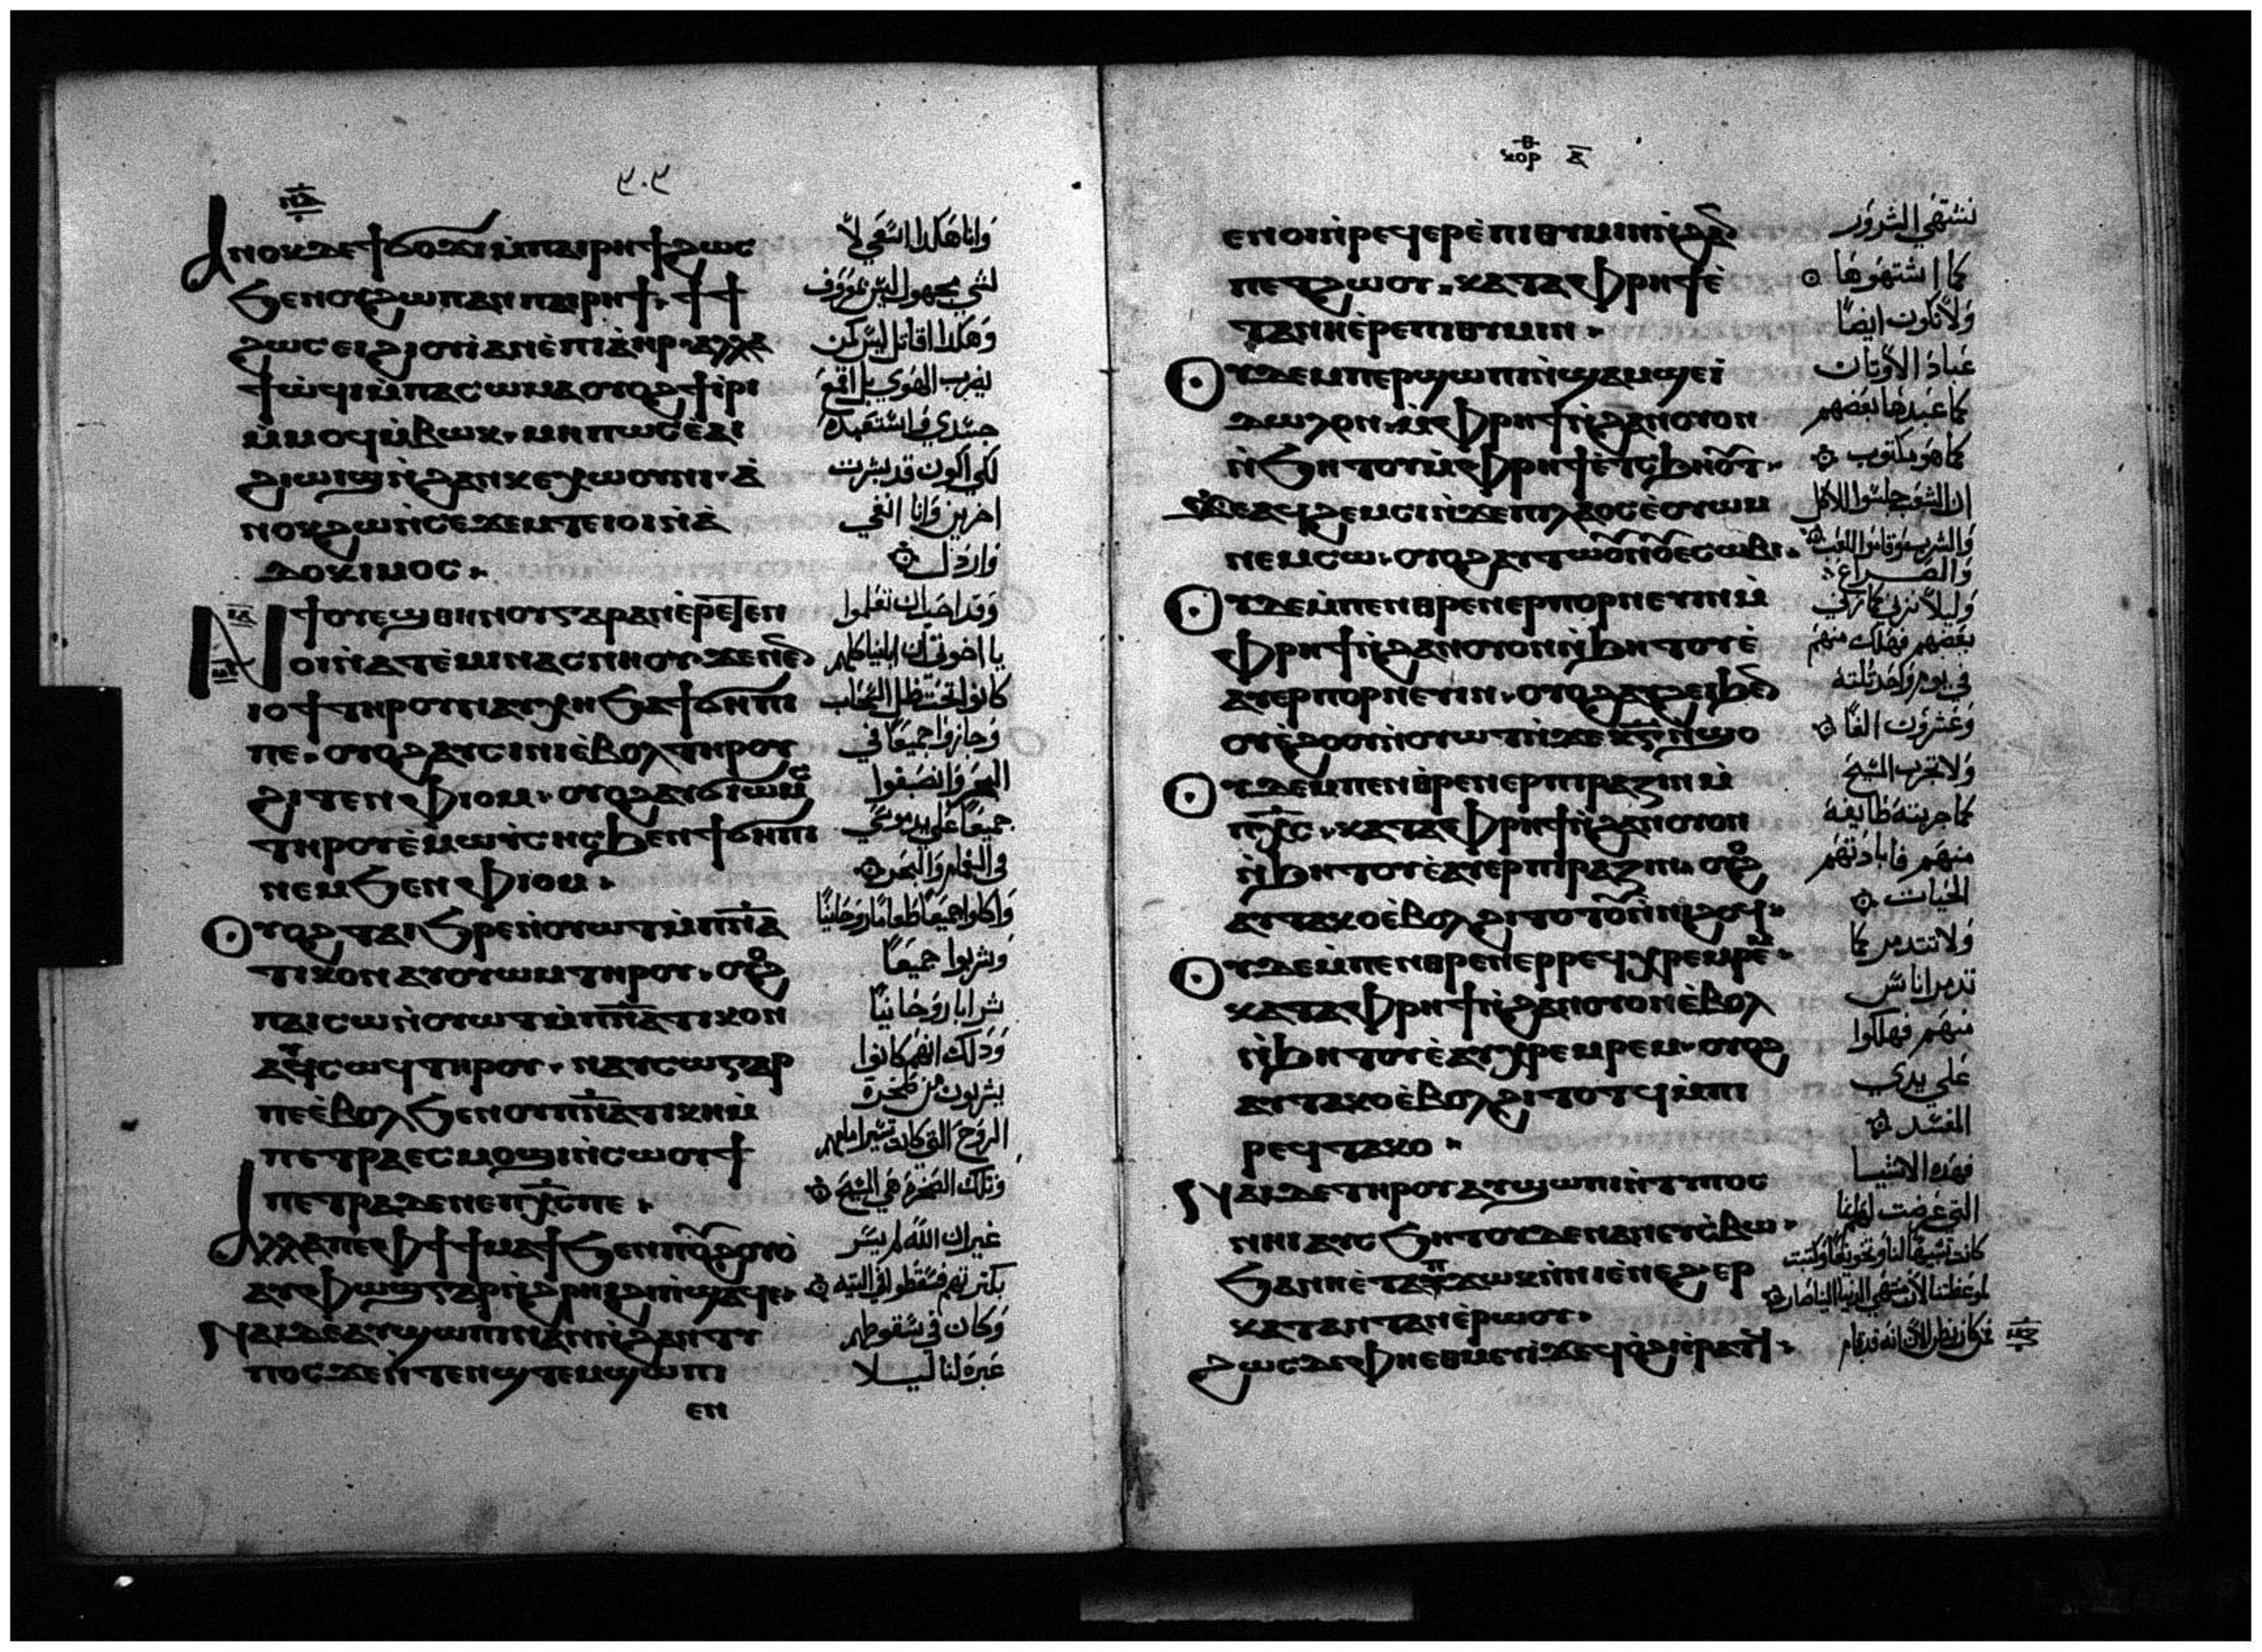 ⲛⲁ
Ⲁⲛⲟⲕ ⲇⲉ ϯϭⲟϫⲓ ⲙ̀ⲡⲁⲓⲣⲏϯ ϩⲱⲥ
ϧⲉⲛ ⲟⲩϩⲱⲡ ⲁⲛ ⲡⲁⲓⲣⲏϯ ϯϯ
ϩⲱⲥ ⲉⲓϩⲓⲟⲩⲓ̀ ⲁⲛ ⲉ̀ⲡⲓⲁ̀ⲏⲣ ⲁⲗⲗⲁ
ϯⲱ̀ϥⲓ ⲙ̀ⲡⲁⲥⲱⲙⲁ ⲟⲩⲟϩ ϯⲓ̀ⲣⲓ
ⲙ̀ⲙⲟϥ ⲙ̀ⲃⲱⲕ ⲙⲏⲡⲱⲥ ⲉ̀ⲁⲓ
ϩⲓⲱⲓϣ ⲛ̀ϩⲁⲛⲕⲉⲭⲱⲟⲩⲛⲓ ⲁ̀
ⲛⲟⲕ ϩⲱ ⲛ̀ⲥⲉϫⲉⲙⲧ ⲉⲓⲟⲓ ⲛ̀ⲁ̀
ⲇⲟⲕⲓⲙⲟⲥ
Ⲛϯⲟⲩⲉϣ ⲑⲏⲛⲟⲩ ⲅⲁⲣ ⲁⲛ ⲉ̀ⲣⲉⲧⲉⲛ
ⲟⲓ ⲛ̀ⲁⲧⲉ̀ⲙⲓ ⲛⲁⲥⲛⲏⲟⲩ ϫⲉ ⲛⲉⲛ
ⲓⲟϯ ⲧⲏⲣⲟⲩ ⲛⲁⲩⲭⲏ ϧⲁ ϯϭⲏⲡⲓ
ⲡⲉ ⲟⲩⲟϩ ⲁⲩⲥⲓⲛⲓ ⲉ̀ⲃⲟⲗ ⲧⲏⲣⲟⲩ
ϩⲓⲧⲉⲛ ⲫⲓⲟⲙ ⲟⲩⲟϩ ⲁⲩϭⲓⲱⲙⲥ
ⲧⲏⲣⲟⲩ ⲉ̀ⲙⲱⲩ̀ⲥⲏⲥ ϧⲉⲛ ϯϭⲏⲡⲓ
ⲛⲉⲙ ϧⲉⲛ ⲫⲓⲟⲙ
Ⲟⲩⲟϩ ⲧⲁⲓϧⲣⲉ ⲛ̀ⲟⲩⲱⲧ ⲙ̀ⲡⲛ̅ⲁ̅
ⲧⲓⲕⲟⲛ ⲁⲩⲟⲩⲱⲙ ⲧⲏⲣⲟⲩ ⲟⲩⲟϩ
ⲡⲁⲓⲥⲱ ⲛ̀ⲟⲩⲱⲧ ⲙ̀ⲡⲛ̅ⲁ̅ⲧⲓⲕⲟⲛ
ⲁⲩⲥⲱϥ ⲧⲏⲣⲟⲩ ⲛⲁⲩⲥⲱ ⲅⲁⲣ
ⲡⲉ ⲉ̀ⲃⲟⲗ ϧⲉⲛ ⲟⲩⲡⲛ̅ⲁ̅ⲧⲓⲕⲏ ⲙ̀
ⲡⲉⲧⲣⲁ ⲉⲥⲙⲟϣⲓ ⲛ̀ⲥⲱⲟⲩ ϯ
ⲡⲉⲧⲣⲁ ⲇⲉ ⲛⲉ ⲡⲭ̅ⲥ̅ ⲡⲉ
Ⲁⲗⲗⲁ ⲡⲉ ⲫϯ ϯⲙⲁϯ ϧⲉⲛ ⲡⲟⲩϩⲟⲩⲟ̀
ⲁⲩⲫⲱϣ ⲅⲁⲣ ⲛ̀ϩⲣⲏⲓ ϩⲓ ⲡϣⲁϥⲉ
Ⲛⲁⲓ ⲇⲉ ⲁⲩϣⲱⲡⲓ ⲛⲁⲛ ⲛ̀ϩⲁⲛⲧⲩ
ⲡⲟⲥ ϫⲉ ⲛ̀ⲧⲉⲛϣⲧⲉⲙϣⲱⲡⲓ
ⲉⲛ
وانا هكذا اسعى لا
لشي مجهول ليس معروف
وهكذا اقاتل ليس كمن
يضرب الهوى بل اقمع
جسدي واستعبده
لكي اكون قد بشرت
اخرين وانا القي
وارذل
وقد احب ان تعلموا
يا اخوتي ان ابانا كلهم
كانوا تحت ظل السحاب
وجازوا جميعا في
البحر وانصبغوا
جميعا على يد موسى
في الغمام والبحر
واكلوا جميعا طعاما روحانيا
وشربوا جميعا
شرابا روحانيا
وذلك انهم كانوا
يشربون من صخرة
الروح التي كانت تسير امامهم
وتلك الصخرة هي المسيح
غير ان الله لم يسر
بكثرتهم فسقطوا في التيه
وكان في سقوطهم
عبرة لنا ليلا
ⲕⲟⲣ ⲁ̅
ⲉⲛⲟⲓ ⲛ̀ⲣⲉϥⲉⲣⲉ̀ⲡⲓⲑⲩⲙⲓⲛ ⲛ̀ϩⲁⲛ
ⲡⲉⲧϩⲱⲟⲩ ⲕⲁⲧⲁ ⲫⲣⲏϯ ⲉ̀
ⲧⲁⲛⲏ ⲉ̀ⲣⲉⲡⲓⲑⲩⲙⲓⲛ
Ⲟⲩⲇⲉ ⲙⲡⲉⲣϣⲱⲡⲓ ⲛ̀ϣⲁⲙϣⲉ ⲓ̀
ⲇⲱⲗⲟⲛ ⲙ̀ⲫⲣⲏϯ ⲛ̀ϩⲁⲛⲟⲩⲟⲛ
ⲛ̀ϧⲏⲧⲟⲩ ⲙ̀ⲫⲣⲏϯ ⲉ̀ⲧⲥϧⲏⲟⲩⲧ
ϫⲉ ⲁϥϩⲉⲙⲥⲓ ⲛ̀ϫⲉ ⲡⲓⲗⲁⲟⲥ ⲉ̀ⲟⲩⲱⲙ
ⲛⲉⲙ ⲥⲱ ⲟⲩⲟϩ ⲁⲩⲧⲱⲟⲩⲛⲟⲩ ⲉ̀ⲥⲱⲃⲓ
Ⲟⲩⲇⲉ ⲙ̀ⲡⲉⲛⲑⲣⲉⲛⲉⲣⲡⲟⲣⲛⲉⲩⲓⲛ ⲙ̀
ⲫⲣⲏϯ ⲛ̀ϩⲁⲛⲟⲩⲟⲛ ⲛ̀ϧⲏⲧⲟⲩ ⲉ̀
ⲁⲩⲉⲣⲡⲟⲣⲛⲉⲩⲓⲛ ⲟⲩⲟϩ ⲁⲩϩⲉⲓ ϧⲉⲛ
ⲟⲩⲉ̀ϩⲟⲟⲩ ⲛ̀ⲟⲩⲱⲧ ⲛ̀ϫⲉ ⲕ̅ⲅ̅ ⲛ̀ϣⲟ
Ⲟⲩⲇⲉ ⲙ̀ⲡⲉⲛⲑⲣⲉⲛⲉⲣⲡⲓⲣⲁⲍⲓⲛ ⲙ̀
ⲡⲭ̅ⲥ̅ ⲕⲁⲧⲁ ⲫⲣⲏϯ ⲛ̀ϩⲁⲛⲟⲩⲟⲛ
ⲛ̀ϧⲏⲧⲟⲩ ⲉ̀ⲁⲩⲉⲣⲡⲓⲣⲁⲍⲓⲛ ⲟⲩⲟϩ
ⲁⲩⲧⲁⲕⲟ ⲉ̀ⲃⲟⲗ ϩⲓⲧⲟⲧⲟⲩ ⲛ̀ⲛⲓϩⲟϥ
Ⲟⲩⲇⲉ ⲙ̀ⲡⲉⲛⲑⲣⲉⲛⲉⲣⲣⲉϥⲭⲣⲉⲙⲣⲉⲙ
ⲕⲁⲧⲁ ⲫⲣⲏϯ ⲛ̀ϩⲁⲛⲟⲩⲟⲛ ⲉ̀ⲃⲟⲗ
ⲛ̀ϧⲏⲧⲟⲩ ⲉ̀ⲁⲩⲭⲣⲉⲙⲣⲉⲙ ⲟⲩⲟϩ
ⲁⲩⲧⲁⲕⲟ ⲉ̀ⲃⲟⲗ ϩⲓⲧⲟⲧϥ ⲙ̀ⲡⲓ
ⲣⲉϥⲧⲁⲕⲟ
Ⲛⲁⲓ ⲇⲉ ⲧⲏⲣⲟⲩ ⲁⲩϣⲱⲡⲓ ⲛ̀ⲧⲩⲡⲟⲥ
ⲛⲏⲓ ⲁⲩⲥϧⲏⲧⲟⲩ ⲇⲉ ⲛⲁⲛ ⲉⲩⲥ̀ⲃⲱ
ϧⲁ ⲛⲏ ⲉ̀ⲧⲁ ⲡϫⲱⲕ ⲛ̀ⲛⲓⲉ̀ⲛⲉϩ ⲉⲣ
ⲕⲁⲧⲁⲛⲧⲁⲛ ⲉ̀ⲣⲱⲟⲩ
ϩⲱⲥⲇⲉ ⲫⲏ ⲉⲑⲙⲉⲩⲓ̀ ϫⲉ ϥⲟ̀ϩⲓ ⲉ̀ⲣⲁⲧϥ
نشتهي الشرور
كما اشتهوها
ولا نكون ايضا
عباد الاوثان
كما عبدها بعضهم
كما هو مكتوب
ان الشعب جلسوا للاكل
والشرب وقاموا للعب
والصراع
وليلا نزني كما زنى
بعضهم فهلك منهم
في يوم واحد ثلثه
وعشرون الفا
ولا نجرب المسيح
كما جربته طايفة
منهم فابادتهم
الحيات
ولا نتذمر كما
تذمر اناس
منهم فهلكوا
على يدي
المفسد
فهذه الاشيا
التي عرضت لهم